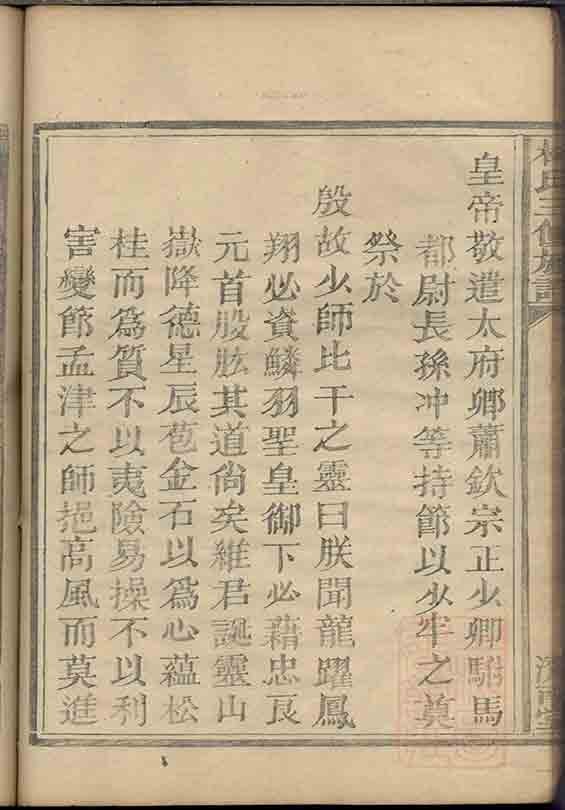 林氏三修族譜
皇帝敬遣太府卿蕭欽宗正少卿駙馬
都尉長孫冲等持節以少牢之奠
祭於
殷故少師比干之靈曰朕聞龍躍鳳
翔必資鱗羽聖皇御下必藉忠良
元首股肱其道尚矣維君誕靈山
嶽降德星辰苞金石以爲心蘊松
桂而爲質不以夷險易操不以利
害變節孟津之師挹高風而莫進